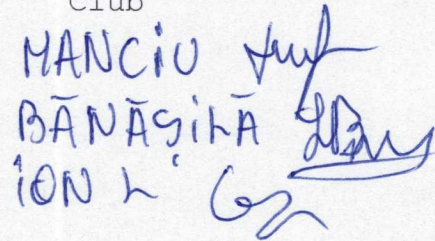 Club
MANCiU
BĂNĂȘiLĂ
iON L